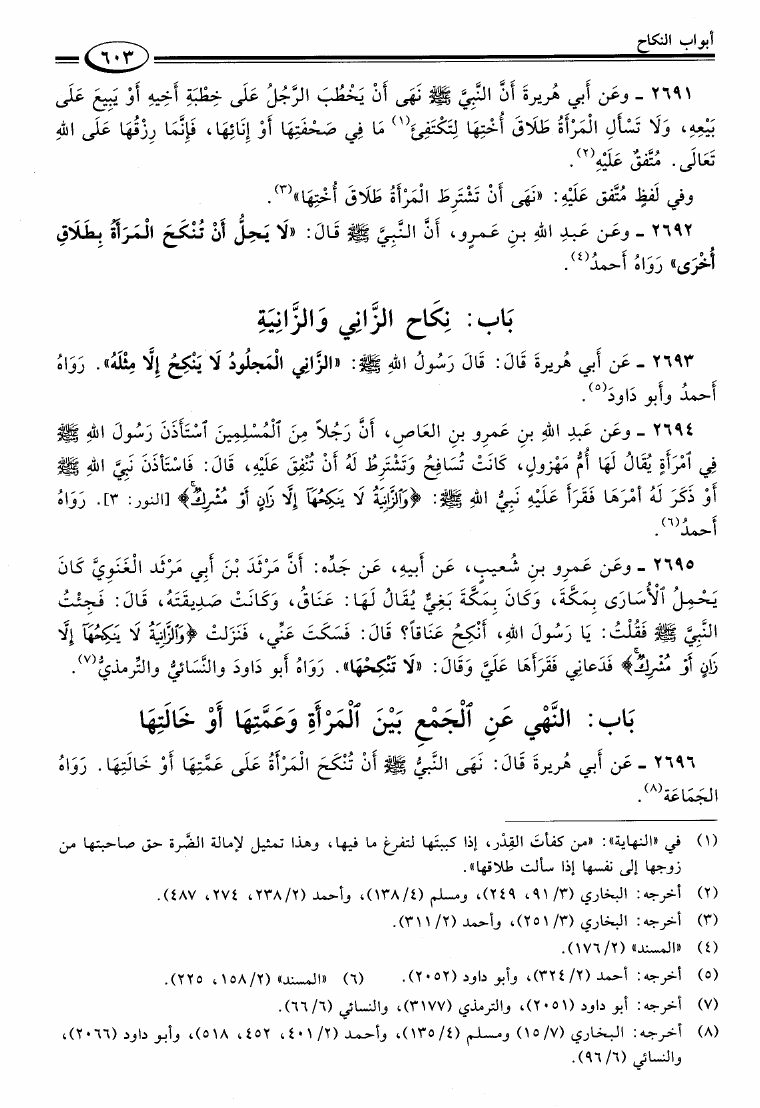 أبواب النكاح
٦٠٣
٢٦٩١ ـ وعَن أبي هُريرةَ أَنَّ النَّبِيَّ ﷺ نَهَى أَنْ يَخْطُبَ الرَّجُلُ عَلَى خِطْبَةِ أَخِيهِ أَوْ يَبِيعَ عَلَى
بَيْعِهِ، وَلَا تَسْأَلِ الْمَرْأَةُ طَلَاقَ أُخْتِهَا لِتَكْتَفِئَ(١) مَا فِي صَحْفَتِهَا أَوْ إِنَائِهَا، فَإِنَّمَا رِزْقُهَا عَلَى اللهِ
تَعَالَى. مُتَّفقٌ عَلَيْهِ(٢).
وفي لَفظٍ مُتَّفق عَلَيْهِ: «نَهَى أَنْ تَشْتَرِطَ الْمَرْأَةُ طَلَاقَ أُخْتِهَا»(٣).
٢٦٩٢ ـ وعَن عَبدِ اللهِ بنِ عَمرٍو، أَنَّ النَّبيَّ ﷺ قَالَ: «لَا يَحِلُّ أَنْ تُنْكَحَ الْمَرَأَةُ بِطَلَاقِ
أُخْرَى» رَوَاهُ أَحمدُ(٤).
بَاب: نِكَاح الزَّانِي وَالزَّانِيَةِ
٢٦٩٣ ـ عَن أَبي هُريرةَ قَالَ: قَالَ رَسُولُ اللهِ ﷺ: «الزَّانِي الْمَجلُودُ لَا يَنْكِحُ إِلَّا مِثْلَهُ». رَوَاهُ
أَحمدُ وأَبو دَاودَ(٥).
٢٦٩٤ ـ وعَن عَبدِ اللهِ بنِ عَمرِو بنِ العَاصِ، أَنَّ رَجُلاً مِنَ ٱلْمُسْلِمِينَ ٱسْتَأْذَنَ رَسُولَ اللهِ ﷺ
فِي ٱمْرَأَةٍ يُقَالُ لَهَا أُمُّ مَهْزُولٍ، كَانَتْ تُسَافِحُ وَتَشْتَرِطُ لَهُ أَنْ تُنْفِقَ عَلَيْهِ، قَالَ: فَاسْتَأْذَنَ نَبِيَّ اللهِ ﷺ
أَوْ ذَكَرَ لَهُ أَمْرَهَا فَقَرَأَ عَلَيْهِ نَبِيُّ اللهِ ﷺ: ﴿وَٱلزَّانِيَةُ لَا يَنكِحُهَآ إِلَّا زَانٍ أَوْ مُشْرِكٌ﴾ [النور: ٣]. رَوَاهُ
أَحمدُ(٦).
٢٦٩٥ ـ وعَن عَمرِو بنِ شُعيبٍ، عَن أَبيهِ، عَن جَدِّه: أَنَّ مَرْثَدَ بْنَ أَبِي مَرْثَد الْغَنَوِيَّ كَانَ
يَحْمِلُ ٱلْأُسَارَى بِمَكَّةَ، وَكَانَ بِمَكَّةَ بَغِيٌّ يُقَالُ لَهَا: عَنَاقُ، وَكَانَتْ صَدِيقَتَهُ، قَالَ: فَجِئْتُ
النَّبِيَّ ﷺ فَقُلْتُ: يَا رَسُولَ اللهِ، أَنْكِحُ عَنَاقاً؟ قَالَ: فَسَكَتَ عَنِّي، فَنَزَلَتْ ﴿وَٱلزَّانِيَةُ لَا يَنكِحُهَآ إِلَّا
زَانٍ أَوْ مُشْرِكٌ﴾ فَدَعانِي فَقَرَأَهَا عَلَيَّ وَقَالَ: «لَا تَنْكِحْهَا». رَوَاهُ أَبو دَاودَ والنَّسائيُّ والتِّرمذيُّ(٧).
بَاب: النَّهْي عَنِ ٱلْجَمْعِ بَيْنَ ٱلْمَرْأَةِ وَعَمَّتِهَا أَوْ خَالَتِهَا
٢٦٩٦ ـ عَن أَبي هُريرةَ قَالَ: نَهَى النَّبيُّ ﷺ أَنْ تُنْكَحَ الْمَرْأَةُ عَلَى عَمَّتِهَا أَوْ خَالَتِهَا. رَوَاهُ
الجَمَاعَة(٨).
(١) في «النهاية»: «من كفأتَ القِدْر، إذا كببتَها لتفرغ ما فيها، وهذا تمثيل لإمالة الضَّرة حق صاحبتها من
زوجها إلى نفسها إذا سألت طلاقها».
(٢) أخرجه: البخاري (٩١/٣، ٢٤٩)، ومسلم (١٣٨/٤)، وأحمد (٢٣٨/٢، ٢٧٤، ٤٨٧).
(٣) أخرجه: البخاري (٢٥١/٣)، وأحمد (٣١١/٢).
(٤) «المسند» (١٧٦/٢).
(٥) أخرجه: أحمد (٣٢٤/٢)، وأبو داود (٢٠٥٢). (٦) «المسند» (١٥٨/٢، ٢٢٥).
(٧) أخرجه: أبو داود (٢٠٥١)، والترمذي (٣١٧٧)، والنسائي (٦٦/٦).
(٨) أخرجه: البخاري (١٥/٧) ومسلم (١٣٥/٤)، وأحمد (٤٠١/٢، ٤٥٢، ٥١٨)، وأبو داود (٢٠٦٦)،
والنسائي (٩٦/٦).